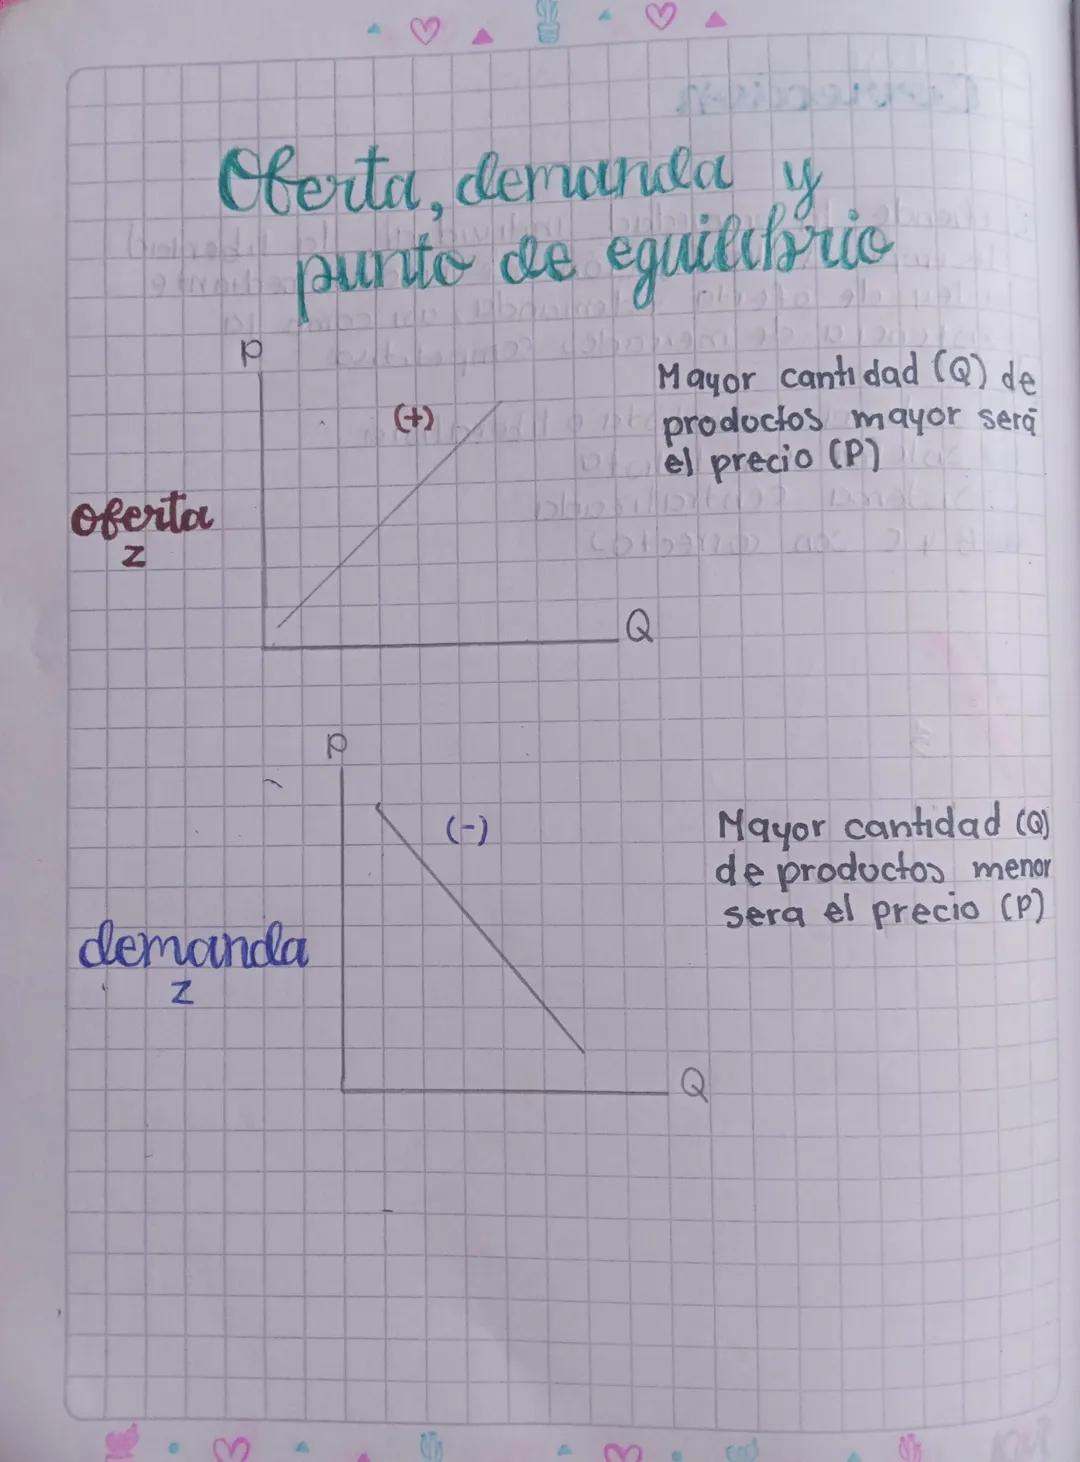 Oferta, demanda y
punto de equilibrio
P
(+)
Mayor cantidad (Q) de
productos mayor será
el precio (P)
oferta
z
Q
P
(-)
Mayor cantidad (Q)
de productos menor
sera el precio (P)
demanda
z
Q